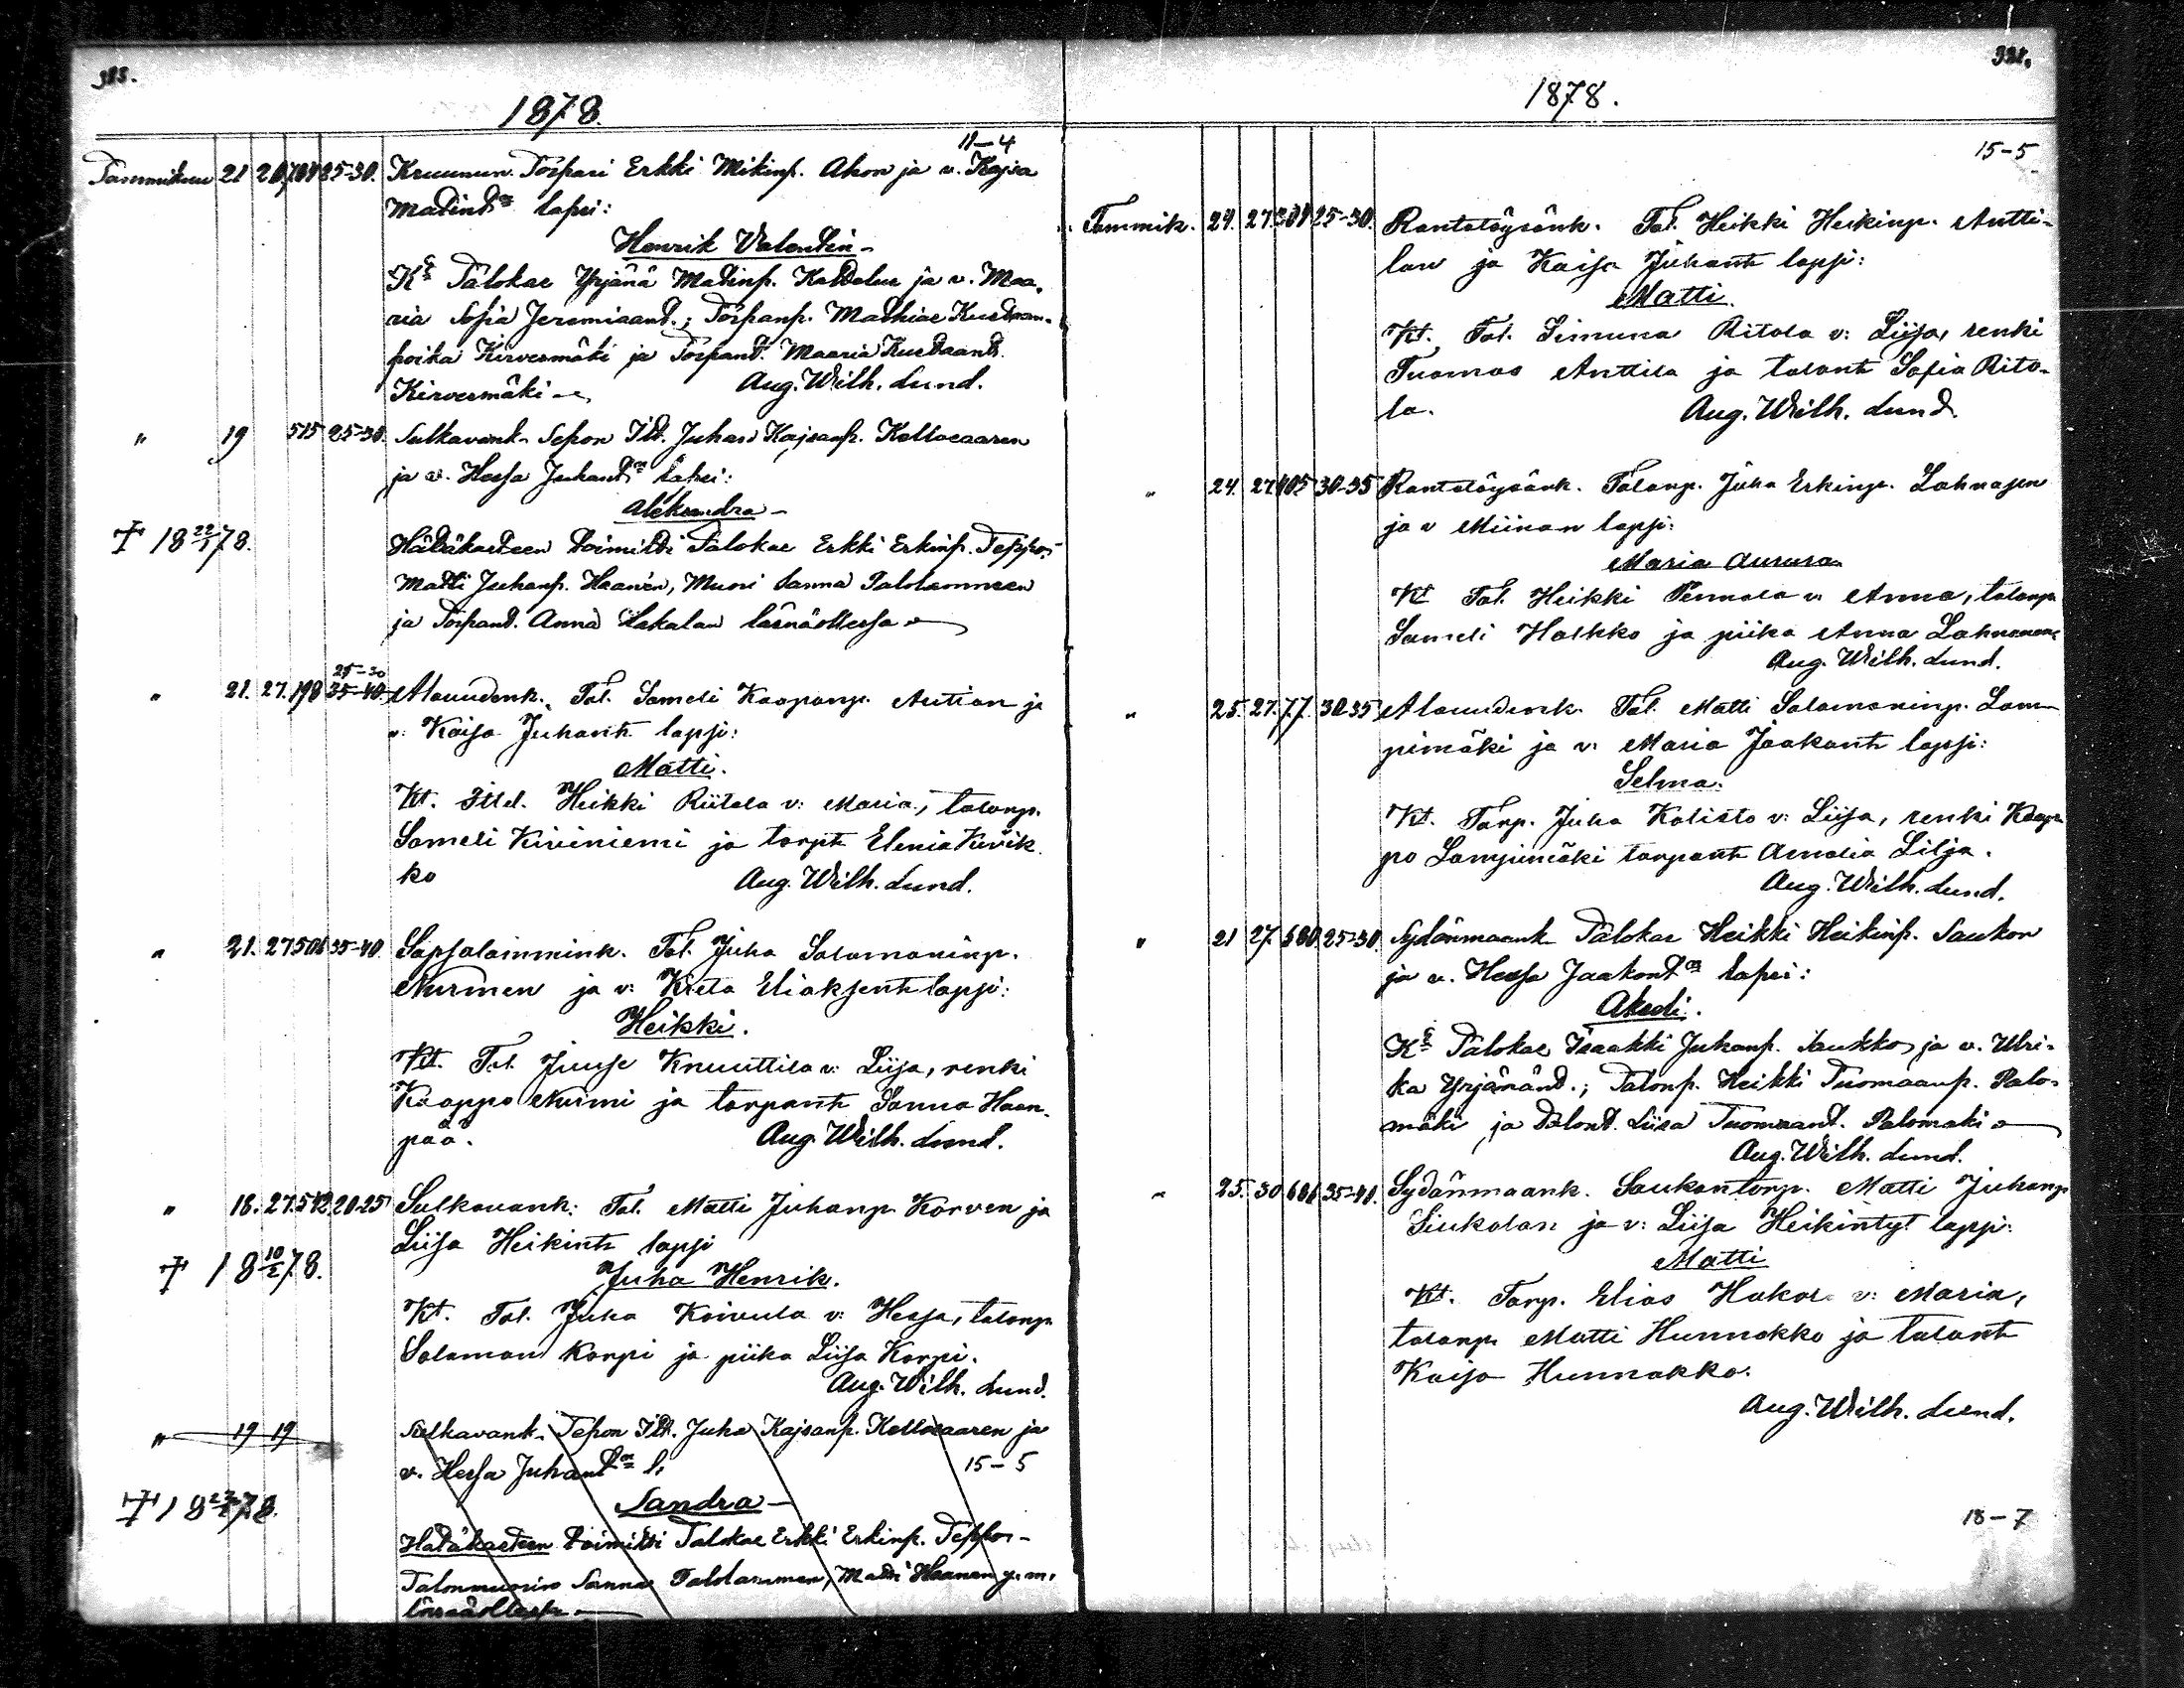 1878.
11-4
Tammikuu 21 25-30. Kruunun Torpari Erkki Mikinp. Ahon ja v. Kajsa
Matint:n lapsi:
Henrik Valentin -
Kt Talokas Yrjänä Matinp. ja v. Maa-
ria Sofia Jeremiaant.; Torpanp. Mathias Kustaan-
poika Kirvesmäki ja Torpant. Maaria Kustaant.
Kirvesmäki Aug. Wilh. Lund.
" 19 515 25-30. Sulkavank. Sepon Itl. Juhan Kajsanp.
ja v. Hessa Juhant:n lapsi:
Aleksandra -
† 18 22/1 78. Hätäkasteen toimitti Talokas Erkki Erkinp. Teppo,
Matti Juhanp. Haanen, Muori Sanna
ja Torpant. Anna Lakalan läsnäollessa
25-30
" 21. 27. 198 35-40. Alavudenk. Tal. Sameli Kaapanp. ja
v: Kaisa Juhant: lapsi:
Matti.
Kt. Itsel. Heikki Riitala v: Maria, talonp.
Sameli Kiviniemi ja torpt: Elenia Kivik
ko Aug. Wilh. Lund.
" 21. 27 506 35-40. Sapsalaminnink. Tal. Juha Salamoninp.
Nurmen ja v: Kreta Eliaksent: lapsi:
Heikki.
Kt. Tal. Juuse Knuuttila v: Liisa, renki
Kaappo Nurmi ja torpant: Sanna Haan-
pää. Aug. Wilh. Lund.
" 18. 27. 542 20-25 Sulkavank: Tal. Matti Juhanp. Korven ja
Liisa Heikint: lapsi
† 18 10/2 78. Juha Henrik.
Kt. Tal. Juha Koivula v: Hessa, talonp.
Salamon Korpi ja piika Liisa Korpi.
Aug. Wilh. Lund.
" 19 19 Sulkavank. Sepon Itl. Juha Kajsanp. ja
v. Hessa Juhant:n l. 15-5
† 18 78. Sandra -
Hätäkasteen toimitti Talokas Erkki Erkinp. Teppo -
Talonmuorin Sanna Matti Haanen y. m.
läsnäollessa
1878.
15-5
Tammik. 24. 27. 25-30. Rantatöysänk. Tal. Heikki Heikinp. Antti-
lan ja Kaisa Juhant: lapsi:
Matti.
Kt. Tal. Simuna Ritola v: Liisa, renki
Tuomas Anttila ja talont: Sofia Rito-
la. Aug. Wilh. Lund.
" 24. 27. 405 30-35 Rantatöysänk. Talonp. Juha Erkinp. Lahnasen
ja v Miinan lapsi:
Maria Aurora
Kt Tal. Heikki Pennala v: Anna, talonp.
Sameli Halkko ja piika Anna
Aug. Wilh. Lund.
" 25. 27. 77. 30 35 Alavudenk. Tal. Matti Salamoninp. Lam-
pimäki ja v: Maria Jaakont: lapsi:
Selma.
Kt. Torp. Juha Kalisto v: Liisa, renki Kaap-
po Lampimäki torpant: Amalia Lilja.
Aug. Wilh. Lund.
" 21 27. 680 25-30. Sydänmaank Talokas Heikki Heikinp. Saukon
ja v. Hessa Jaakont:n lapsi:
Akseli.
Kt Talokas Isaakki Juhanp. Saukko ja v. Ulri-
ka Yrjänänt.; Talonp. Heikki Tuomaanp. Palo-
mäki ja Talont. Liisa Tuomaant. Palomäki
Aug. Wilh. Lund.
" 25. 30 686 35-40. Sydänmaank. Saukontorp. Matti Juhanp
Siukolan ja v: Liisa Heikintyt lapsi:
Matti
Kt. Torp. Elias Hakola v: Maria,
talonp. Matti Hunnakko ja talont:
Kaisa Hunnakko.
Aug. Wilh. Lund.
18-7